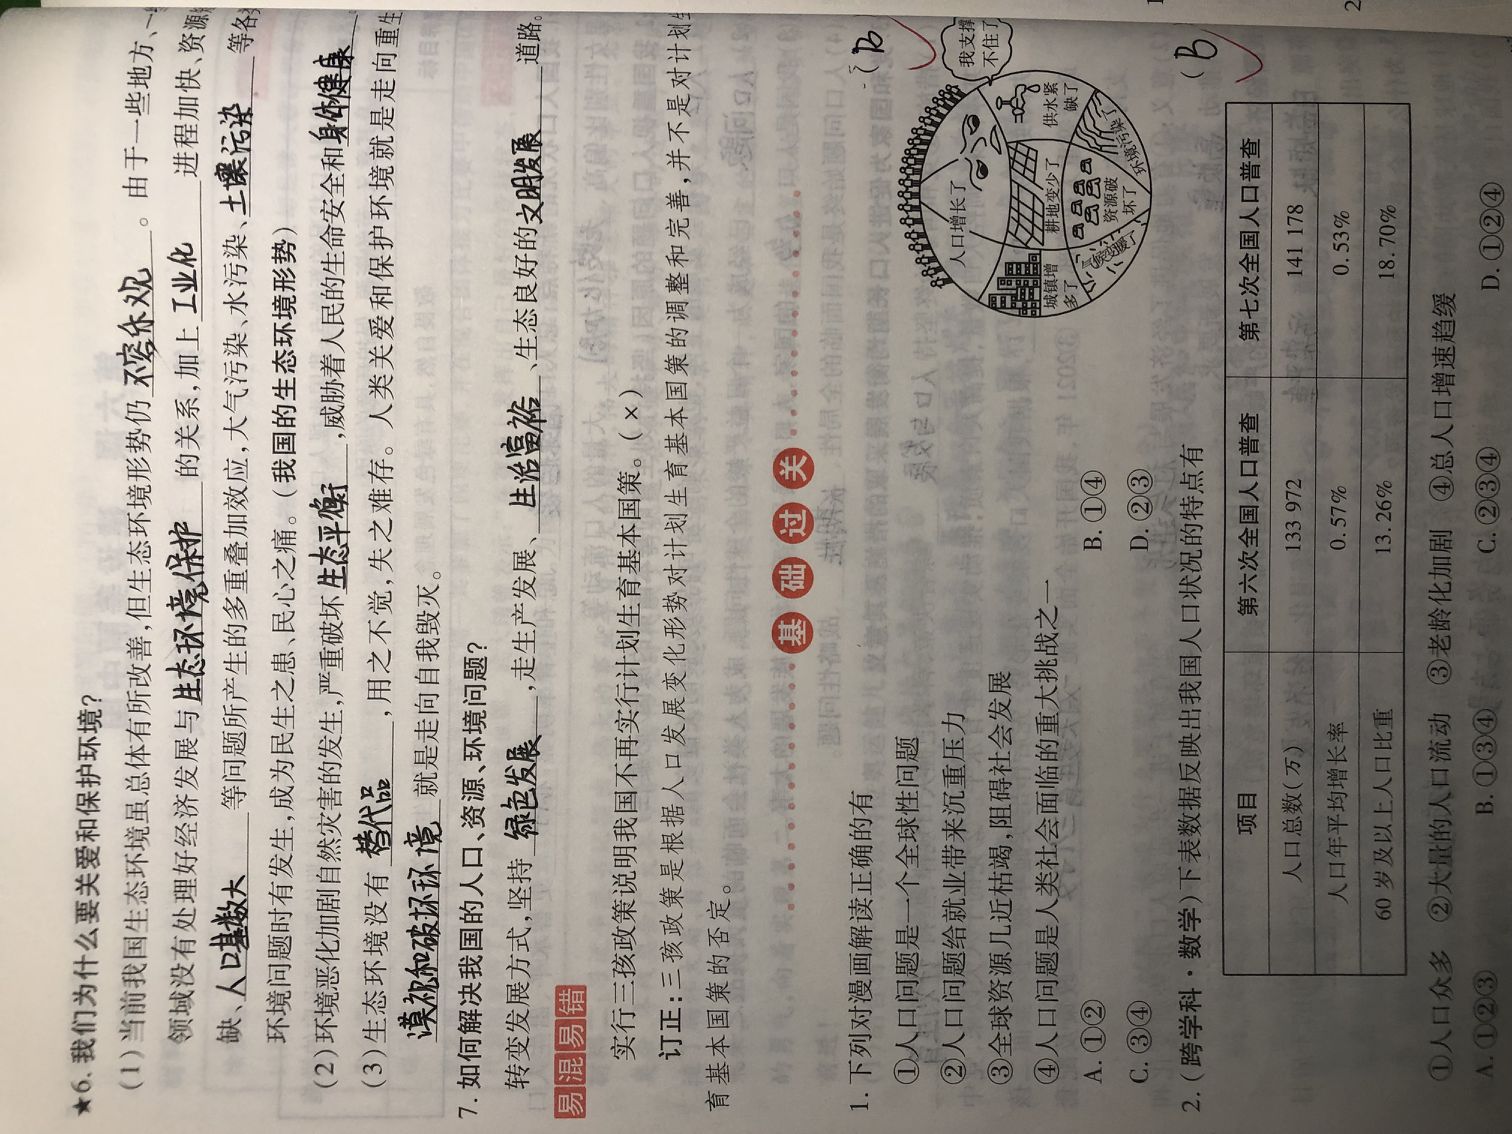 ★6. 我们为什么要关爱和保护环境?
(1)当前我国生态环境虽总体有所改善,但生态环境形势仍 不容乐观 。由于一些地方、一
领域没有处理好经济发展与 生态环境保护 的关系,加上 工业化 进程加快、资源
缺、人口基数大 等问题所产生的多重叠加效应,大气污染、水污染、土壤污染 等各
环境问题时有发生,成为民生之患、民心之痛。(我国的生态环境形势)
(2)环境恶化加剧自然灾害的发生,严重破坏 生态平衡 ,威胁着人民的生命安全和 身体健康
(3)生态环境没有 替代品 ,用之不觉,失之难存。人类关爱和保护环境就是走向重生
漠视和破坏环境 就是走向自我毁灭。
7. 如何解决我国的人口、资源、环境问题?
转变发展方式,坚持 绿色发展 ,走生产发展、 生活富裕 、生态良好的 文明发展 道路。
易混易错
实行三孩政策说明我国不再实行计划生育基本国策。(×)
订正:三孩政策是根据人口发展变化形势对计划生育基本国策的调整和完善,并不是对计划生
育基本国策的否定。
基础过关
1. 下列对漫画解读正确的有 (B
①人口问题是一个全球性问题
②人口问题给就业带来沉重压力
③全球资源几近枯竭,阻碍社会发展
④人口问题是人类社会面临的重大挑战之一
A. ①② B. ①④
C. ③④ D. ②③
人口增长了
我支撑
不住了
城镇增
多了
耕地变少了
供水紧
缺了
气候变暖了
资源破
坏了
环境污染了
2. (跨学科·数学)下表数据反映出我国人口状况的特点有 (B
项目 第六次全国人口普查 第七次全国人口普查
人口总数(万) 133 972 141 178
人口年平均增长率 0.57% 0.53%
60 岁及以上人口比重 13.26% 18.70%
①人口众多 ②大量的人口流动 ③老龄化加剧 ④总人口增速趋缓
A. ①②③ B. ①③④ C. ②③④ D. ①②④